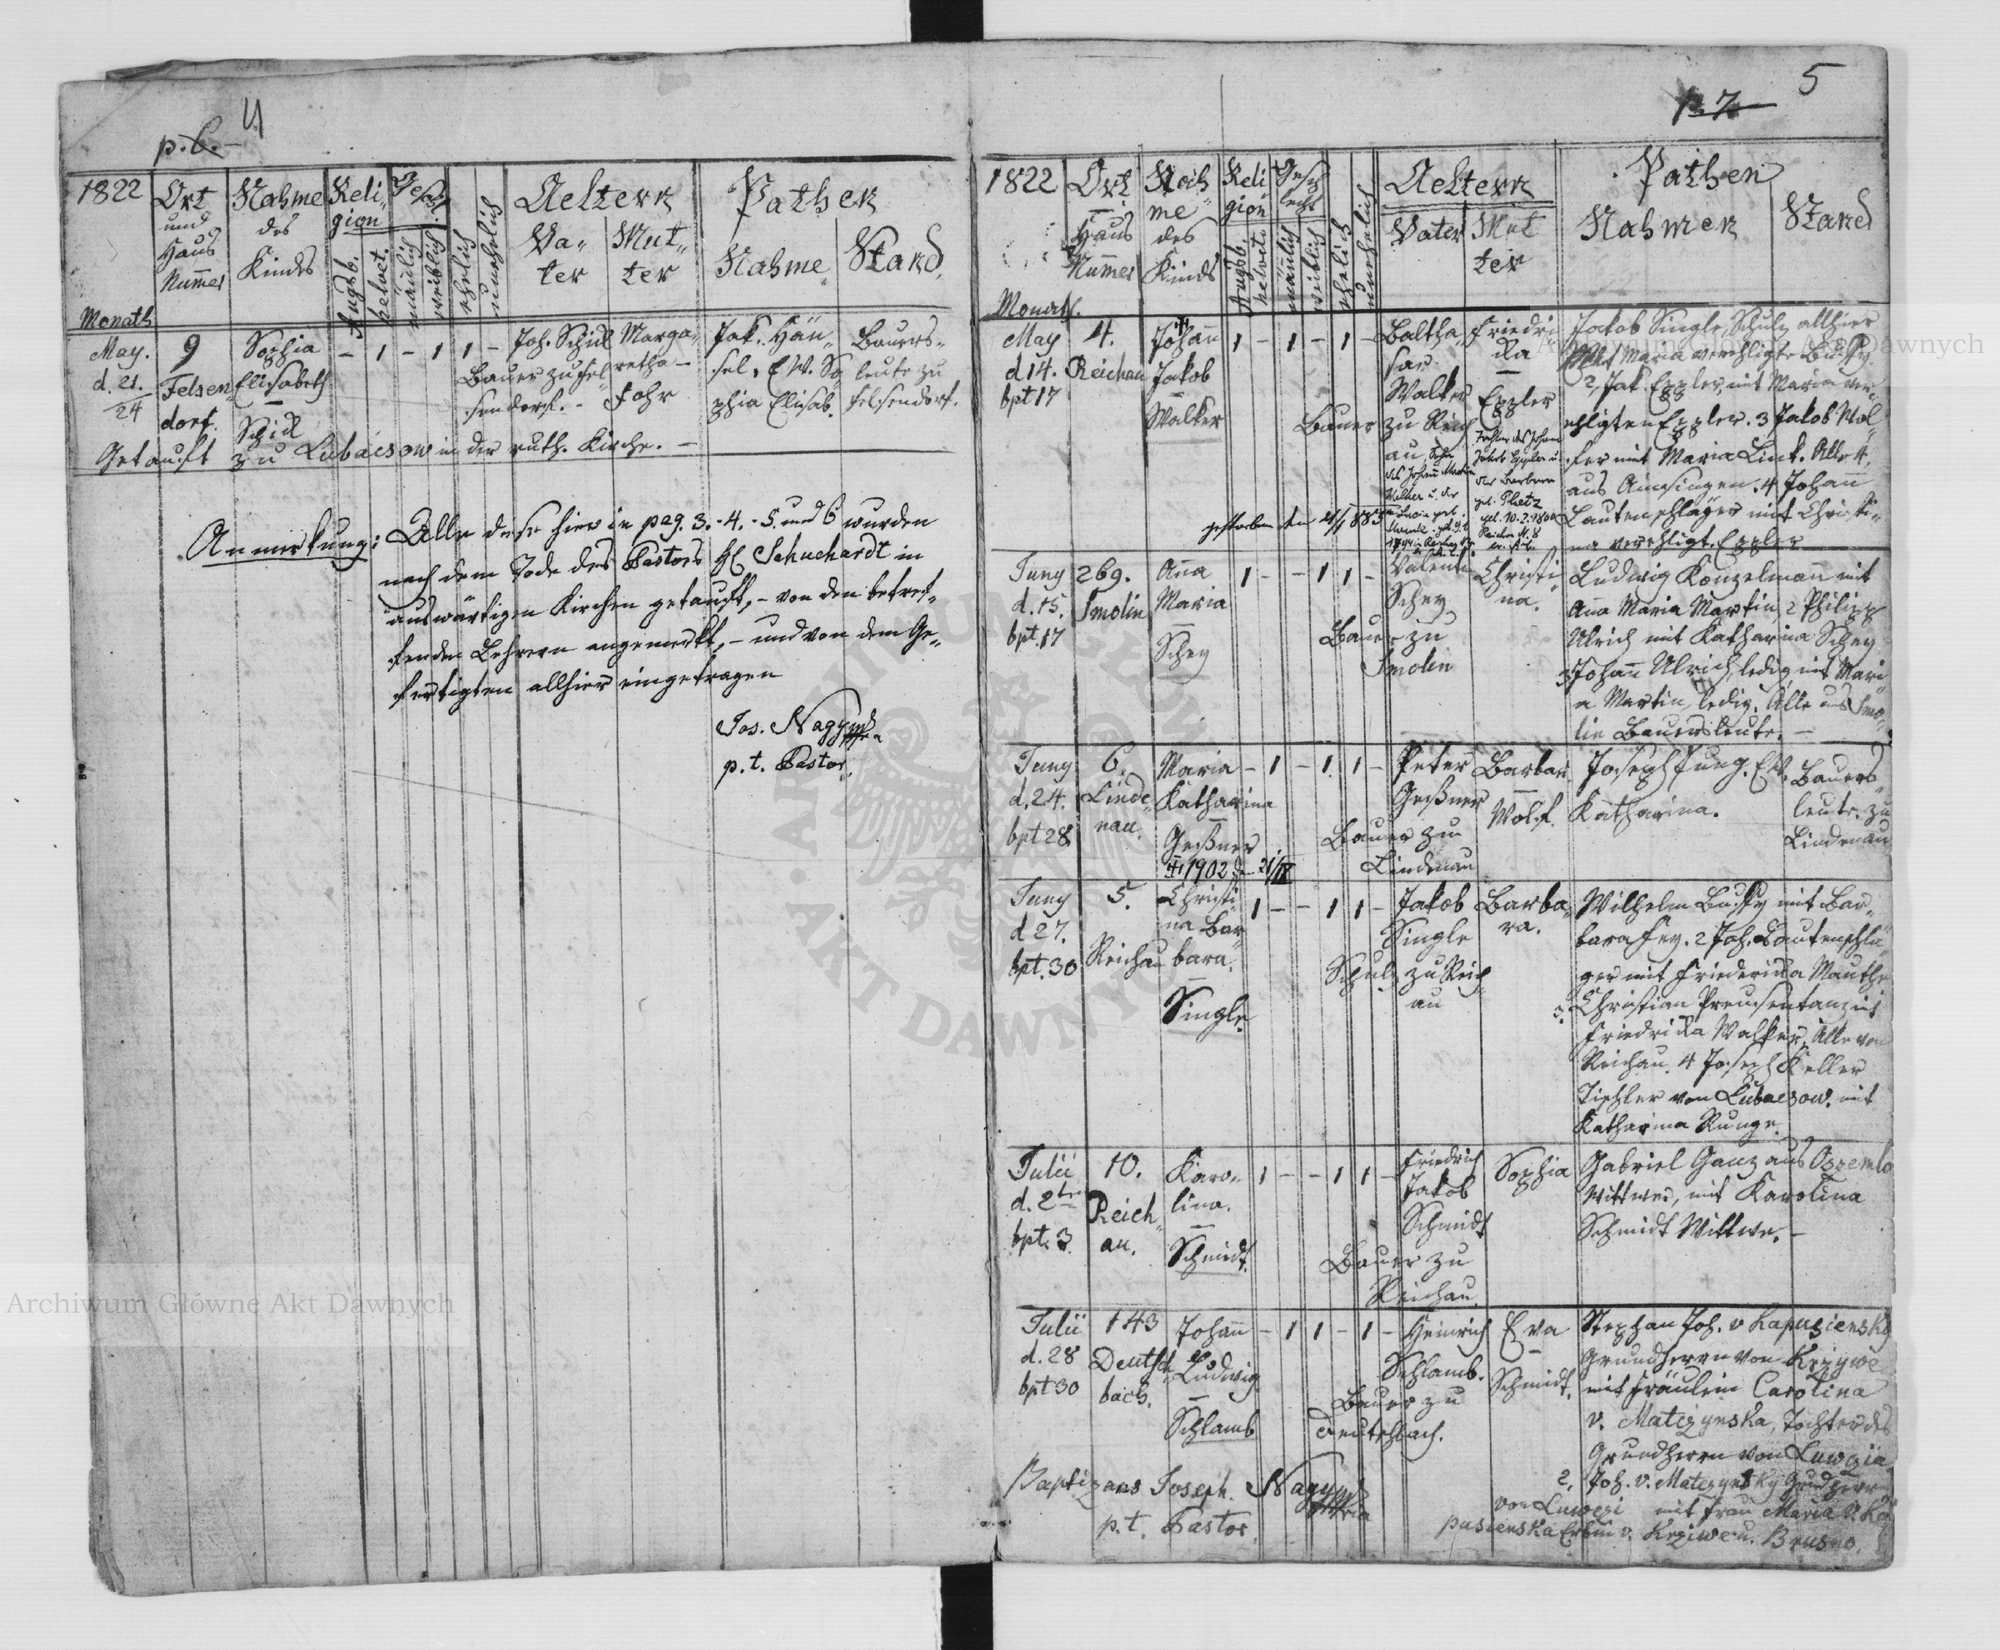 4
p. 6.
1822
Ort und Haus Numer
Nahme des Kindes
Religion
Augsb.
helvet.
Geschl.
mänlich
weiblich
ehelich
unehelich
Aeltern
Vater
Mutter
Pathen
Nahme
Stand
Monath
May.
d. 21.
24
9
Felsendorf.
Sophia
Elisabeth
Schick
- 1 - 1 1 -
Joh. Schick
Bauer zu Felsendorf. -
Margaretha -
Fohr
Jak. Hänsel, E. W. Sophia Elisab.
Bauersleute zu Felsendorf.
Getauft zu Lubacsow in der ruth. Kirche. -
Anmerkung: Alle diese hier in pag. 3. - 4. - 5. und 6 wurden
nach dem Tode des Pastors H. Schuchardt in
auswärtigen Kirchen getauft, - von den betref-
fenden Lehrern angemerkt, - und von dem Ge-
fertigten allhier eingetragen
Jos. Nagy
p. t. Pastor.
5
p. 7
1822
Ort
Haus Numer
Nahme des Kinds
Religion
Augsb.
helvet.
Geschlecht
mänlich
weiblich
ehelich
unehelich
Aeltern
Vater
Mutter
Pathen
Nahmen
Stand
Monath.
May
d 14.
bpt 17
4.
Reichau
Johann
Jakob
Walker
1 - 1 - 1 -
Balthasar
Walker
Bauer zu Reichau
Friedrika
Eppler
gestorben den
Jakob Single, Schulz allhier
mit Maria verehligte Buchy.
2, Jak. Eppler, mit Maria verehligten Eppler. 3 Jakob Walker mit Maria Link. Alle
aus Ainsingen. 4 Johann
Lautenschläger mit Christina verehligt. Eppler
Juny
d. 15.
bpt. 17
269.
Smolin
Anna
Maria
Schey
1 - - 1 1 -
Valentin
Schey
Bauer zu
Smolin
Christina.
Ludwig Konzelmann mit
Anna Maria Martin, 2 Philipp
Ulrich mit Katharina Schey
3 Johann Ulrich, ledig mit Maria Martin, ledig. Alle aus Smolin Bauersleute. -
Juny
d. 24.
bpt 28
6.
Lindenau.
Maria
Katharina
Geßner
1902 21/IX
- 1 - 1 1 -
Peter
Geßner
Bauer zu
Lindenau
Barbara
Wolf.
Joseph Jung. E. W.
Katharina.
Bauersleute. zu
Lindenau
Juny
d 27.
bpt. 30
5.
Reichau
Christina Barbara.
Single.
1 - - 1 1 -
Jakob
Single
Schulz zu Reichau
Barbara.
Wilhelm Buchy mit Barbara Fey. 2 Joh. Lautenschläger mit Friederika Mauthe
3. Christian Preusentanz mit
Friedrika Walker, Alle von
Reichau. 4 Joseph Keller
Tischler von Lubacsow. mit
Katharina Runge.
Julii
d. 2
bpt. 3.
10.
Reichau.
Karolina.
Schmidt.
1 - - 1 1 -
Friedrich
Jakob
Schmidt
Bauer zu
Reichau.
Sophia
Gabriel Ganz aus
Wittwer, mit Karolina
Schmidt Wittwe. -
Julii
d. 28
bpt 30
143
Deutschbach.
Johann
Ludwig
Schlamb
- 1 1 - 1 -
Heinrich
Schlamb.
Bauer zu
Deutschbach.
Eva
Schmidt.
Stephan Joh. v Kapusiensky
Grundherrn von Krziwe
mit Fräulein Carolina
v. Matczynska, Tochter des
Grundherrn von
2, Joh. v. Matczynsky Grundherr
von mit Frau Maria v. Kapusienska Erbin v. Krziwe u. Brusno.
Baptizans Joseph. Nagy
p. t. Pastor
Archiwum Główne Akt Dawnych
Archiwum Główne Akt Dawnych